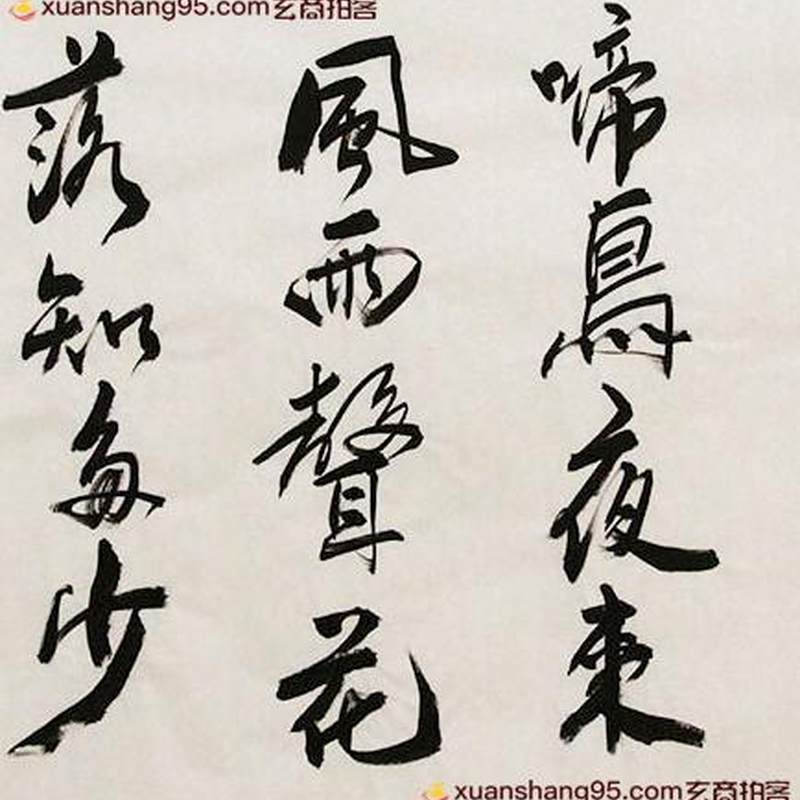 xuanshang95.com玄商拍客
啼鳥夜來
風雨聲花
落知多少
xuanshang95.com玄商拍客